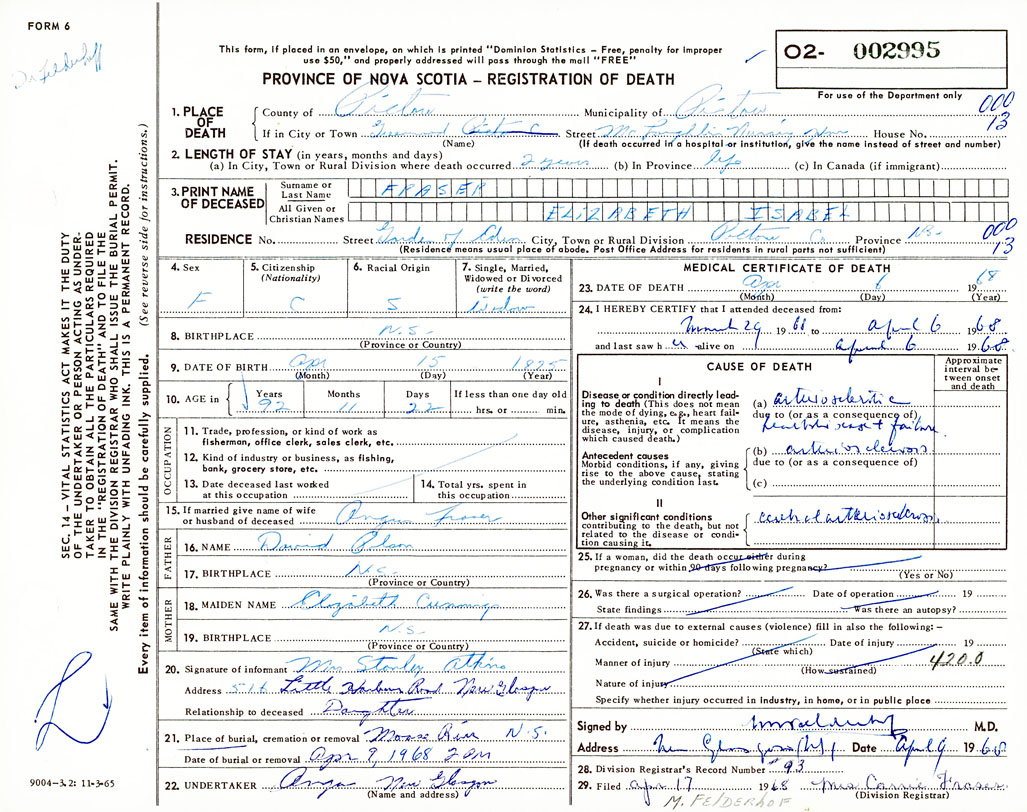 FORM 6
Dr Felderhoff
This form, if placed in an envelope, on which is printed "Dominion Statistics – Free, penalty for improper
use $50," and properly addressed will pass through the mail "FREE"
PROVINCE OF NOVA SCOTIA – REGISTRATION OF DEATH
O2- 002995
For use of the Department only
000
13
1. PLACE OF DEATH
County of Pictou Municipality of Pictou
If in City or Town Greenwood Pictou C Street Mc Laughlin Nursing Home House No.
(Name) (If death occurred in a hospital or institution, give the name instead of street and number)
2. LENGTH OF STAY (in years, months and days)
(a) In City, Town or Rural Division where death occurred 2 years (b) In Province life (c) In Canada (if immigrant)
3. PRINT NAME OF DECEASED
Surname or Last Name FRASER
All Given or Christian Names ELIZABETH ISABEL
RESIDENCE No. Street Garden of Eden City, Town or Rural Division Pictou Co Province N.S.
000
13
(Residence means usual place of abode. Post Office Address for residents in rural parts not sufficient)
4. Sex F
5. Citizenship (Nationality) C
6. Racial Origin S
7. Single, Married, Widowed or Divorced (write the word) Widow
8. BIRTHPLACE N.S.
(Province or Country)
9. DATE OF BIRTH Apr 15 1875
(Month) (Day) (Year)
10. AGE in Years 92 Months 11 Days 22 If less than one day old hrs. or min.
OCCUPATION
11. Trade, profession, or kind of work as
fisherman, office clerk, sales clerk, etc.
12. Kind of industry or business, as fishing,
bank, grocery store, etc.
13. Date deceased last worked
at this occupation
14. Total yrs. spent in
this occupation
15. If married give name of wife
or husband of deceased Angus Fraser
FATHER
16. NAME David Olson
17. BIRTHPLACE N.S.
(Province or Country)
MOTHER
18. MAIDEN NAME Elizabeth Cummings
19. BIRTHPLACE N.S.
(Province or Country)
20. Signature of informant Mrs Stanley Atkins
Address 516 Little Harbour Road New Glasgow
Relationship to deceased Daughter
21. Place of burial, cremation or removal Moose River N.S.
Date of burial or removal Apr 9, 1968 2 PM
22. UNDERTAKER New Glasgow
(Name and address)
MEDICAL CERTIFICATE OF DEATH
23. DATE OF DEATH Apr 6 1968
(Month) (Day) (Year)
24. I HEREBY CERTIFY that I attended deceased from:
March 29 1968 to April 6 1968
and last saw h er alive on April 6 1968
CAUSE OF DEATH
Approximate interval between onset and death
I
Disease or condition directly leading to death (This does not mean the mode of dying, e.g., heart failure, asthenia, etc. It means the disease, injury, or complication which caused death.)
(a) arteriosclerotic
due to (or as a consequence of)
heart disease & failure
Antecedent causes
Morbid conditions, if any, giving rise to the above cause, stating the underlying condition last.
(b) arteriosclerosis
due to (or as a consequence of)
(c)
II
Other significant conditions
contributing to the death, but not related to the disease or condition causing it.
cerebral arteriosclerosis
25. If a woman, did the death occur either during
pregnancy or within 90 days following pregnancy?
(Yes or No)
26. Was there a surgical operation? Date of operation 19
State findings Was there an autopsy?
27. If death was due to external causes (violence) fill in also the following: –
Accident, suicide or homicide? Date of injury 19
(State which)
Manner of injury 420.0
(How sustained)
Nature of injury
Specify whether injury occurred in industry, in home, or in public place
Signed by M.D.
Address New Glasgow Date April 9 1968
28. Division Registrar's Record Number 93
29. Filed Apr 17 1968 Mrs Carrie Fraser
(Division Registrar)
M. FELDERHOF
SEC. 14 – VITAL STATISTICS ACT MAKES IT THE DUTY
OF THE UNDERTAKER OR PERSON ACTING AS UNDER-
TAKER TO OBTAIN ALL THE PARTICULARS REQUIRED
IN THE "REGISTRATION OF DEATH" AND TO FILE THE
SAME WITH THE DIVISION REGISTRAR WHO SHALL ISSUE THE BURIAL PERMIT.
WRITE PLAINLY WITH UNFADING INK. THIS IS A PERMANENT RECORD.
Every item of information should be carefully supplied. (See reverse side for instructions.)
9004–3.2: 11-3-65